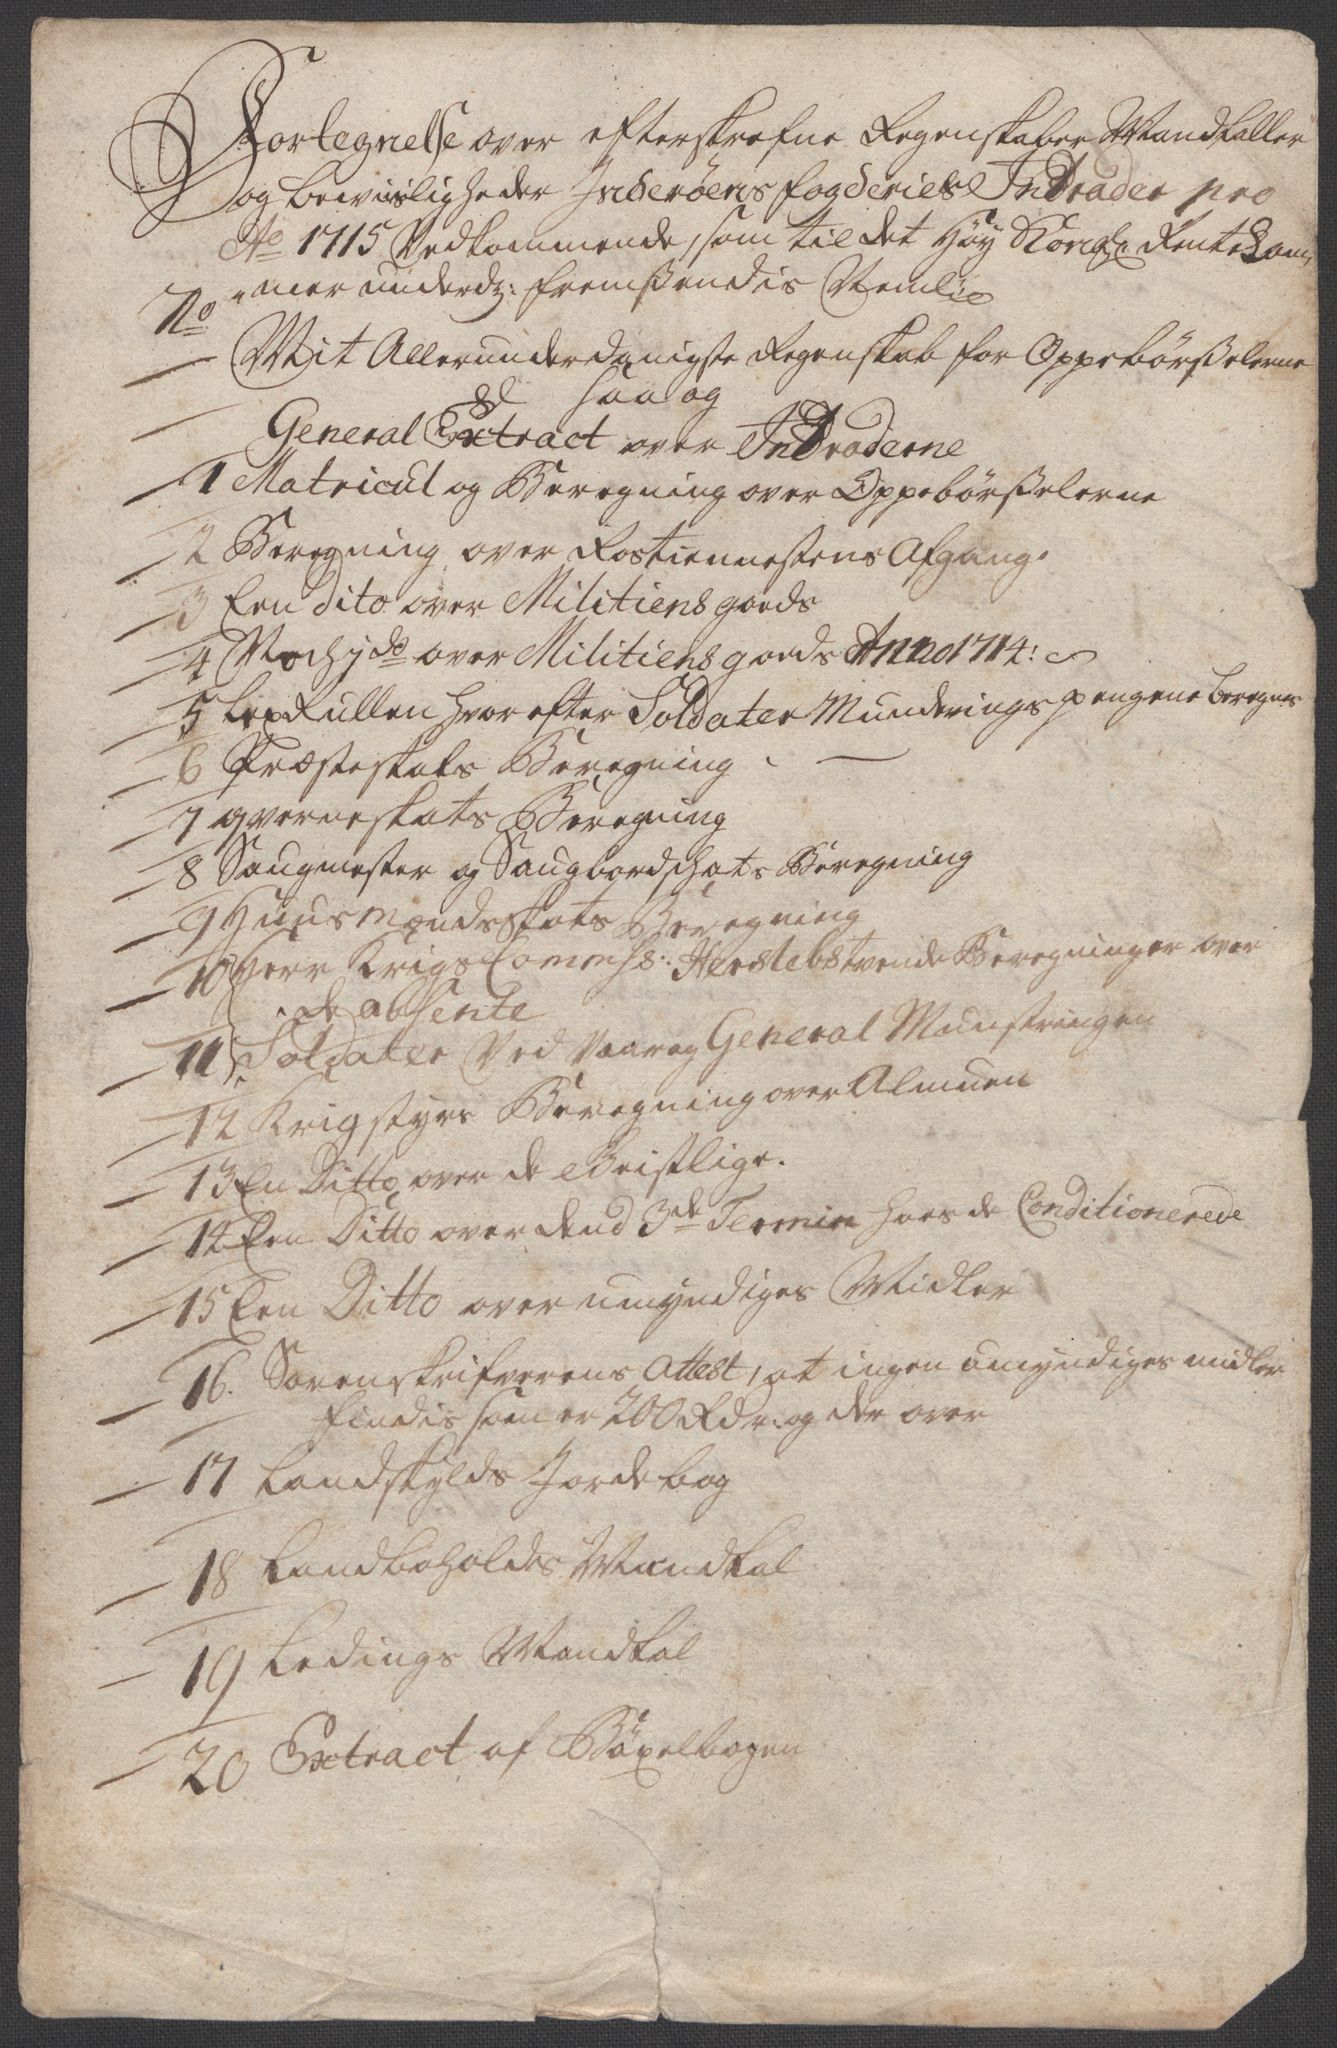 Fortegnelse over efterskrefne Regenskaber Mandtaller
og bewiisligheder Inderöens fogderies Indrader pro
Ao 1715 Vedkommende, som til det Höy Kongl: Rentekam,
mer underdg: fremßendis Nemlig
No
Mit Allerunderdanigste Regenskab for Oppebörßelerne
saa og
General Extract over Indraderne
1 Matricul og Beregning over Oppebörßelerne
2 Beregning over Rostienestens Afgang.
3 Een dito over Militiens goeds
4 Noch 1 do over Militiens goeds Anno 1714:
5 LegRullen hvor efter Soldater Munderings pengene beregnes
6 Præsteskats Beregning
7 Qverneskats Beregning
8 Saugmester og Saugbordschats Beregning
9 Huusmændsskats Beregning
10 Herr Krigs Commiss: Herslebs tvende Beregninger over
de absente
11 Soldater Ved Vaar og General Munstringen
12 Krigstyrs Beregning over Almuen
13 En Ditto over de Geistlige.
14 Een Ditto over dend 3de Termin hoes de Conditionerede
15 Een Ditto over umyndiges Midler
16. Sorenskrifverens Attest, at ingen umyndiges midler
findis som er 200 Rdr: og der over
17 Landskylds Jordebog
18 Landboholds Mandtal
19 Ledings Mandtal
20 Extract af Böxelbogen